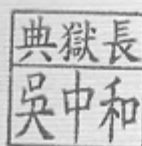 典獄長
吳中和